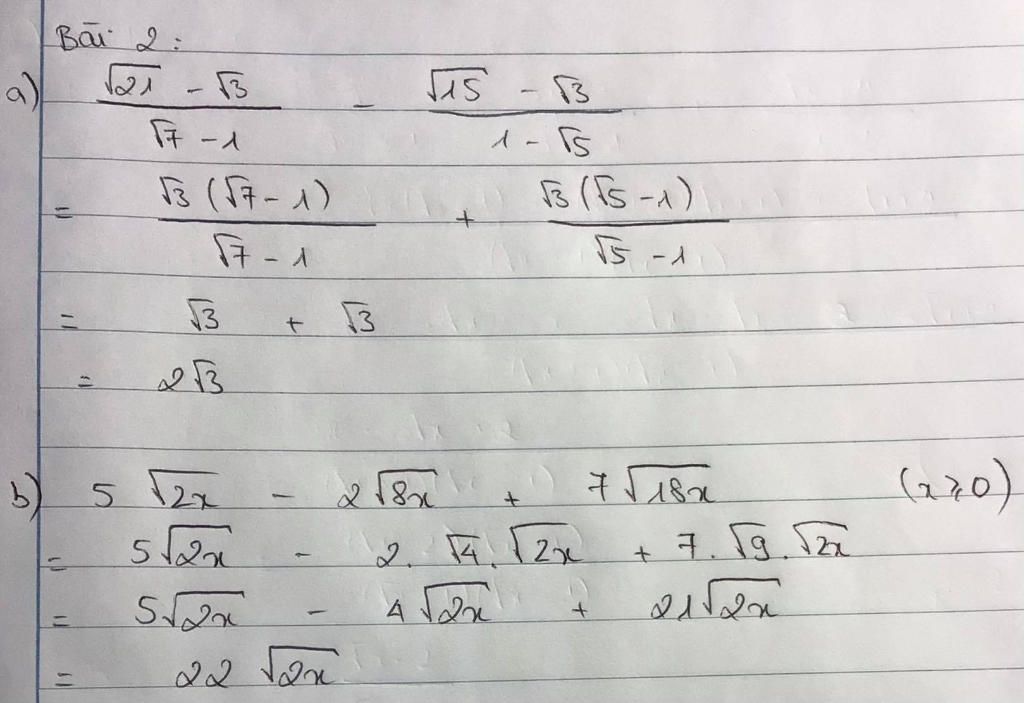 Bài 2:
a) (√21 - √3)/(√7 - 1) - (√15 - √3)/(1 - √5)
= √3(√7 - 1)/(√7 - 1) + √3(√5 - 1)/(√5 - 1)
= √3 + √3
= 2√3
b) 5√(2x) - 2√(8x) + 7√(18x) (x ⩾ 0)
= 5√(2x) - 2.√4.√(2x) + 7.√9.√(2x)
= 5√(2x) - 4√(2x) + 21√(2x)
= 22√(2x)